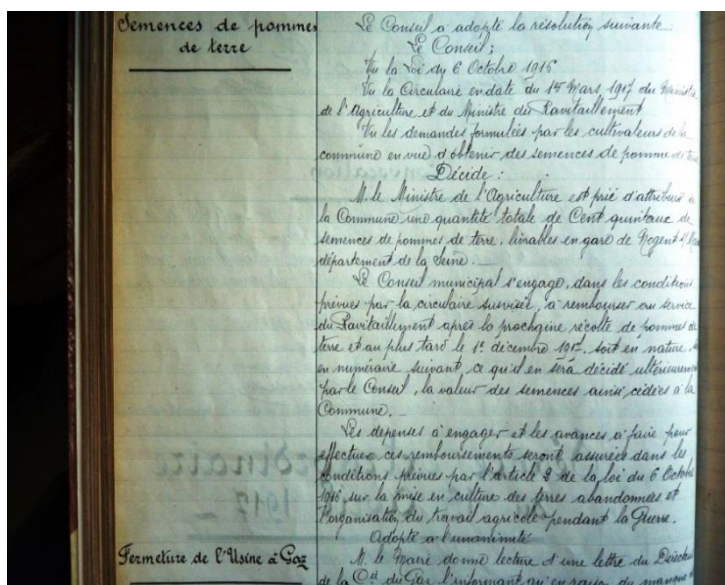 Semences de pommes
de terre
Le Conseil a adopté la résolution suivante :
Le Conseil ;
Vu la Loi du 6 Octobre 1916
Vu la Circulaire en date du 1er Mars 1917 du Ministre
de l'Agriculture et du Ministre du Ravitaillement
Vu les demandes formulées par les cultivateurs de la
commune en vue d'obtenir des semences de pomme de terre
Décide :
M. le Ministre de l'Agriculture est prié d'attribuer à
la Commune une quantité totale de Cent quintaux de
semences de pommes de terre, livrables en gare de Nogent s/
département de la Seine.
Le Conseil municipal s'engage, dans les conditions
prévues par la circulaire susvisée, à rembourser au service
du Ravitaillement après la prochaine récolte de pommes de
terre et au plus tard le 1er décembre 1917, soit en nature,
en numéraire suivant, ce qu'il en sera décidé ultérieurement
par le Conseil, la valeur des semences ainsi cédées à la
Commune.
Les dépenses à engager et les avances à faire pour
effectuer ces remboursements seront assurées dans les
conditions prévues par l'article 2 de la loi du 6 Octobre
1916, sur la mise en culture des terres abandonnées et
l'organisation du travail agricole pendant la Guerre.
Adopté à l'unanimité
Fermeture de l'Usine à Gaz
M. le Maire donne lecture d'une lettre du Directeur
de la Cie du Gaz l'informant qu'en raison du manque